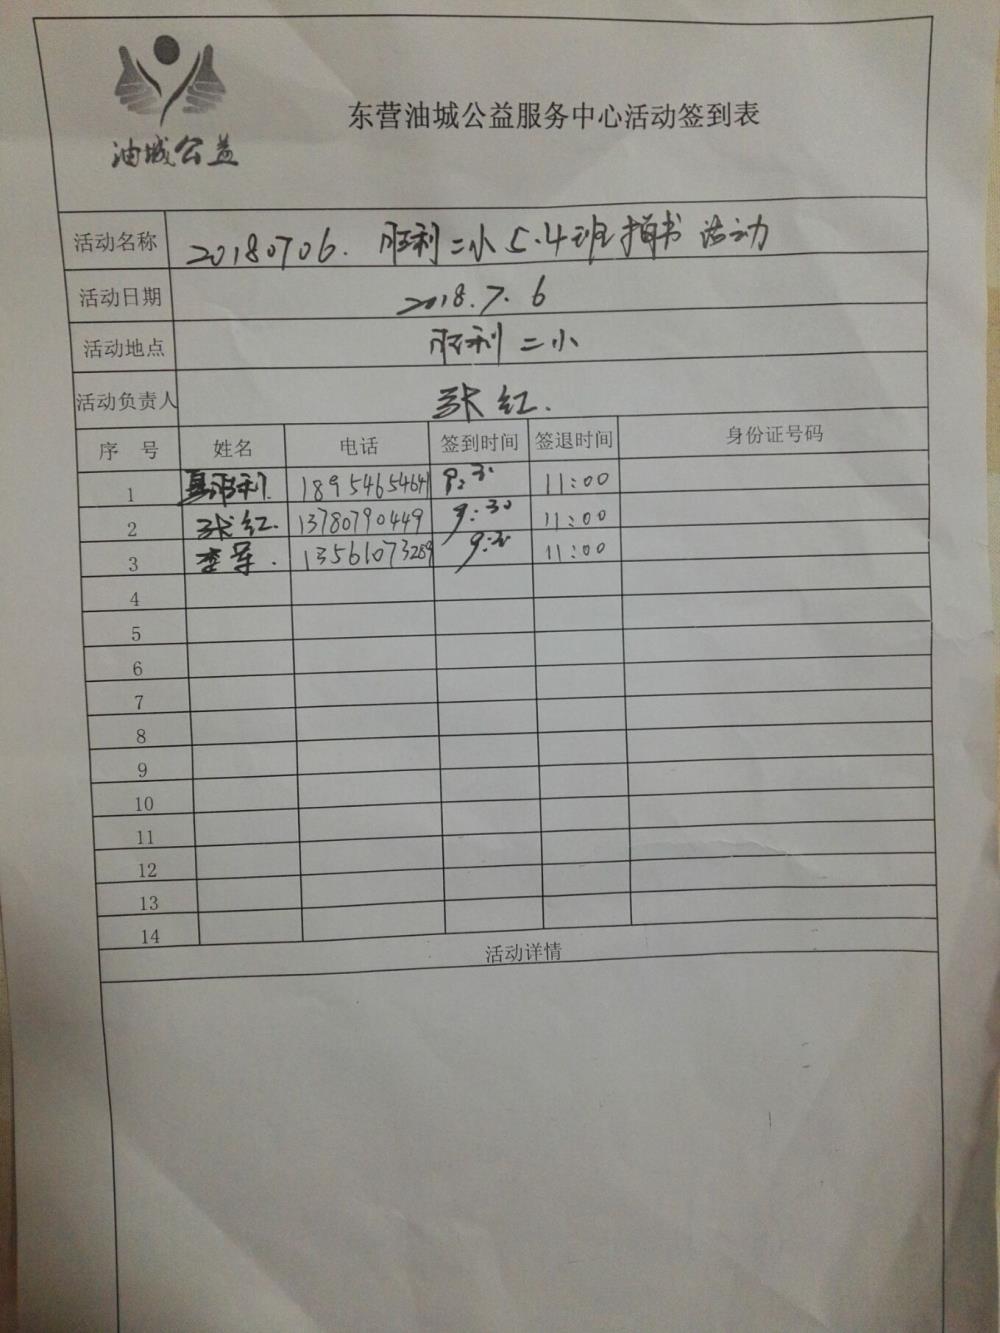 油城公益
东营油城公益服务中心活动签到表
活动名称 20180706. 胜利二小5.4班捐书活动
活动日期 2018.7.6
活动地点 胜利二小
活动负责人 张红.
序 号 姓名 电话 签到时间 签退时间 身份证号码
1 胜利. 18954654641 9:30 11:00
2 张红. 13780790449 9:30 11:00
3 李军. 13561073289 9:30 11:00
4
5
6
7
8
9
10
11
12
13
14
活动详情